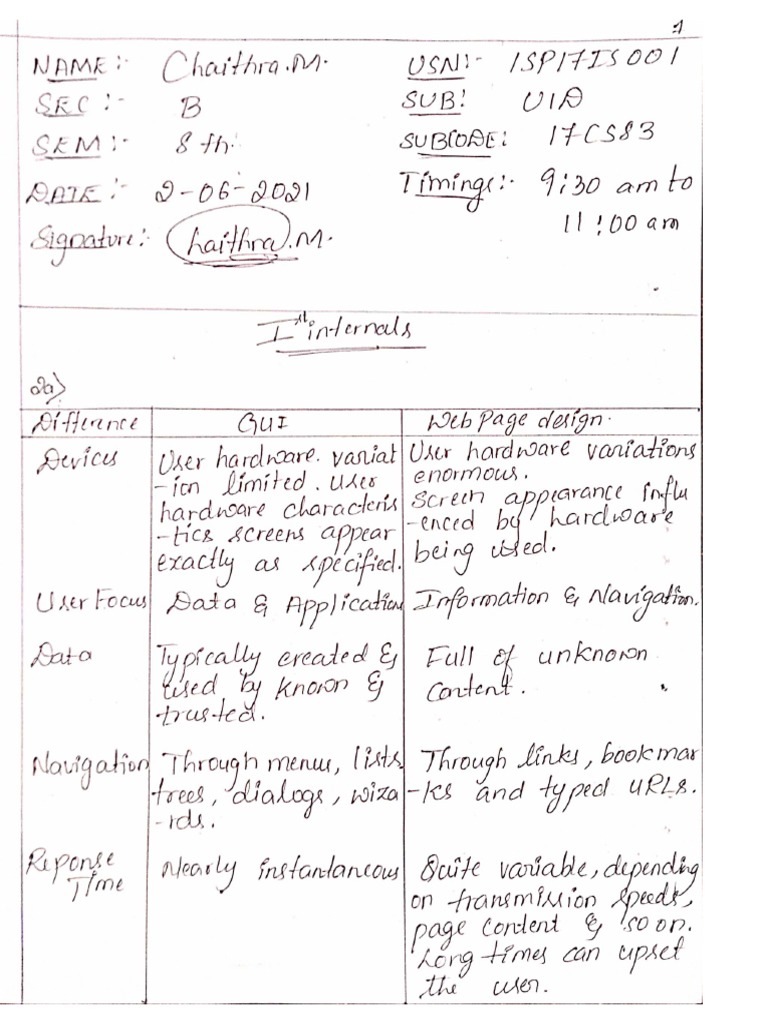 1
NAME:- Chaithra.M. USN:- 1SP17IS001
SEC:- B SUB: UID
SEM:- 8th. SUBCODE: 17CS83
DATE:- 2-06-2021 Timings:- 9:30 am to
11:00 am
Signature:- Chaithra.M.
Ist internals
2a)
Difference GUI Web Page design.
Devices User hardware. variat User hardware variations
-ion limited. User enormous.
hardware characteris Screen appearance influ
-tics screens appear -enced by hardware
exactly as specified. being used.
User Focus Data & Application Information & Navigation.
Data Typically created & Full of unknown
used by known & content.
trusted.
Navigation Through menus, lists, Through links, bookmar
trees, dialogs, wiza -ks and typed URLs.
-rds.
Reponse Nearly instantaneous Quite variable, depending
Time on transmission speeds,
page content & so on.
Long times can upset
the user.